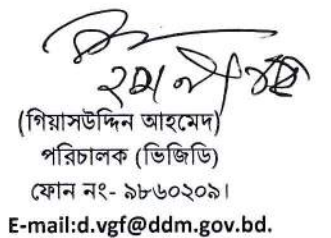 (গিয়াসউদ্দিন আহমেদ)
পরিচালক (ভিজিডি)
ফোন নং- ৯৮৬০২০৯।
E-mail:d.vgf@ddm.gov.bd.